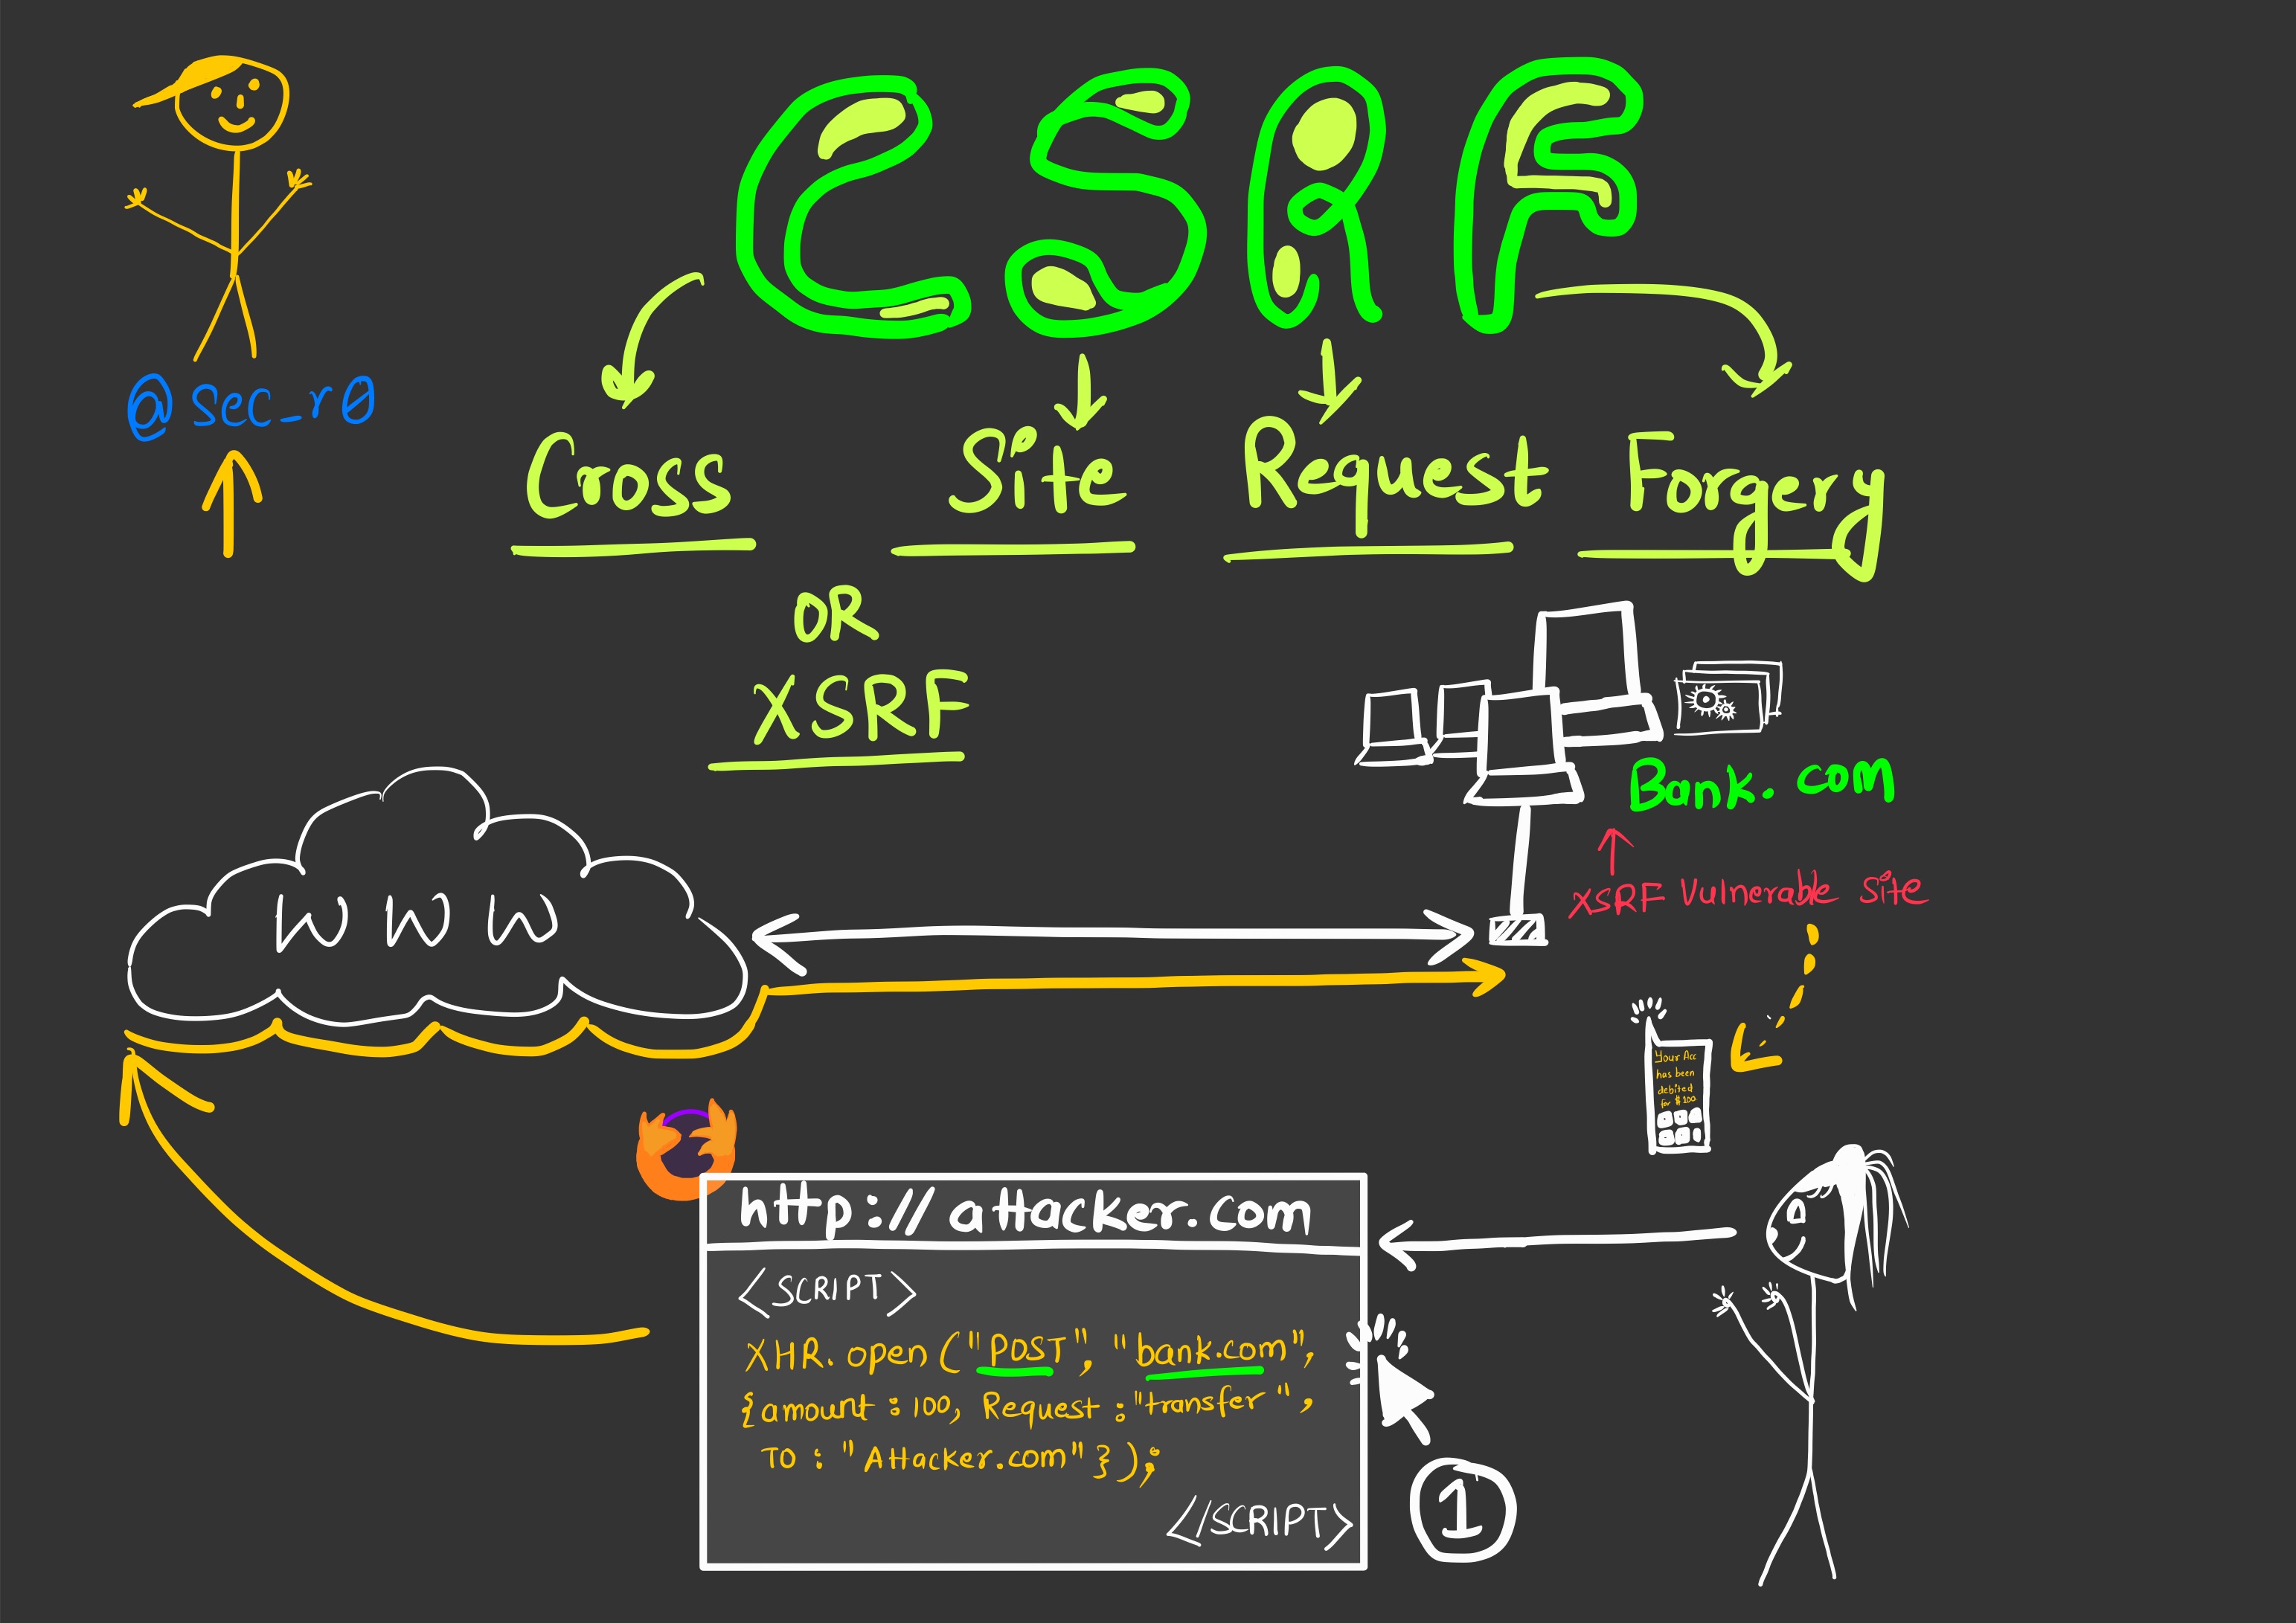 CSRF
@sec_r0
Cross Site Request Forgery
OR
XSRF
Bank.com
XSRF Vulnerable Site
WWW
Your Acc
has been
debited
for $100
http://attacker.com
<SCRIPT>
XHR.open("POST", "bank.com",
{amount:100, Request:"transfer",
To: "Attacker.com"});
</SCRIPT>
1